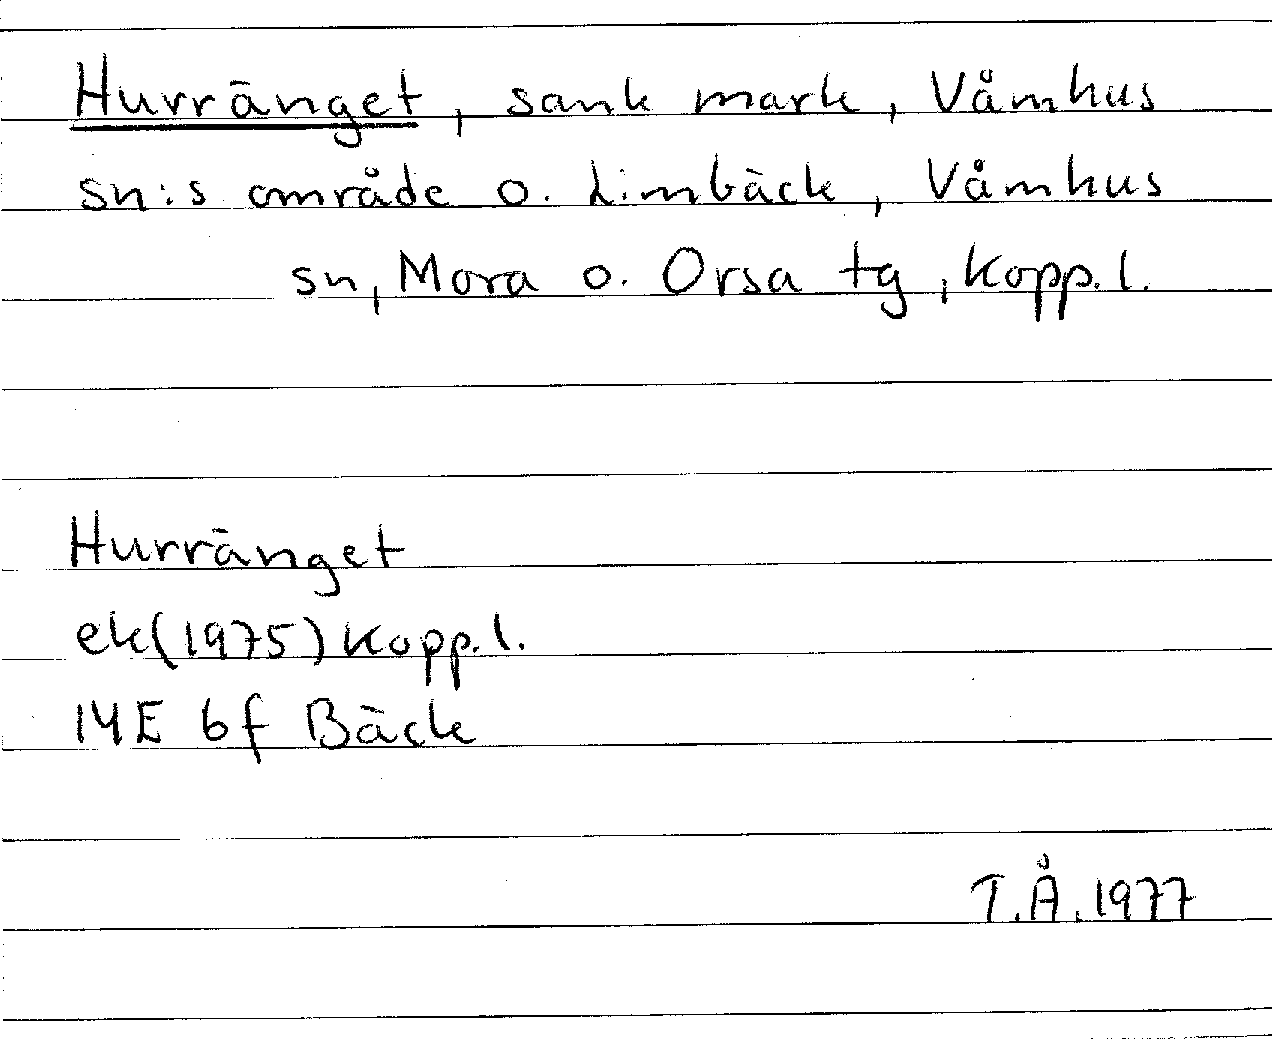 Hurränget, sank mark, Våmhus
sn:s område o. Limbäck, Våmhus
sn, Mora o. Orsa tg, Kopp.l.
Hurränget
ek(1975) Kopp.l.
14E 6f Bäck
T.Å. 1977